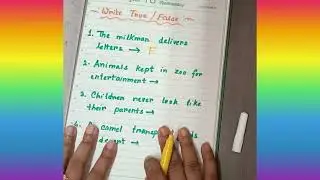 Write True / False
1. The milkman delivers
letters → F
2. Animals kept in zoo for
entertainment →
3. Children never look like
their parents →
camel transp
desert →